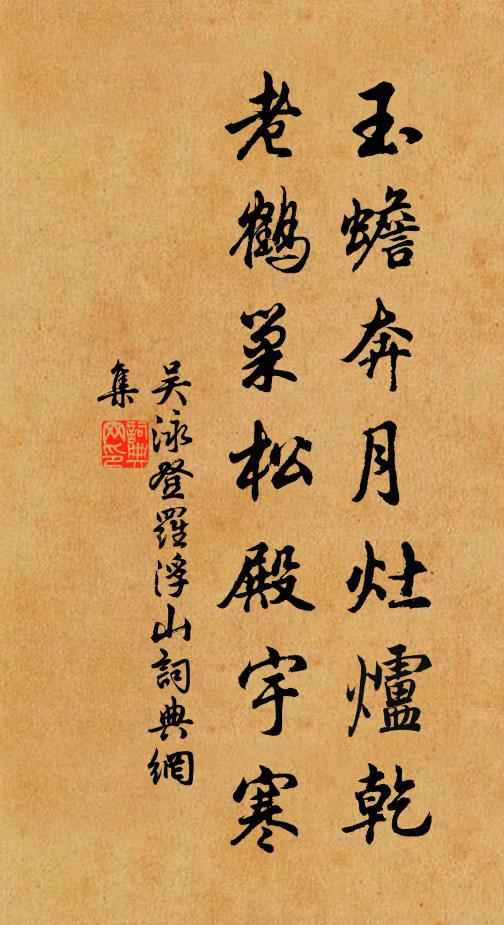 玉蟾奔月灶爐乾
老鶴巢松殿宇寒
吳泳登羅浮山詞典網
集
詞典網印